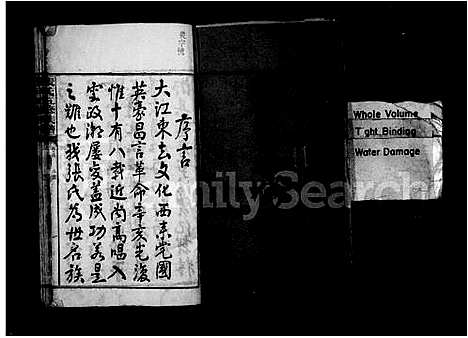 序言
大江東去文化西來党國
英豪昌言革命辛亥光復
惟十有八載近尚高唱入
雲政潮屢変蓋成功若是
之難也我張氏為世名族
Whole Volume
Tight Bindigg
Water Damage
Family Search